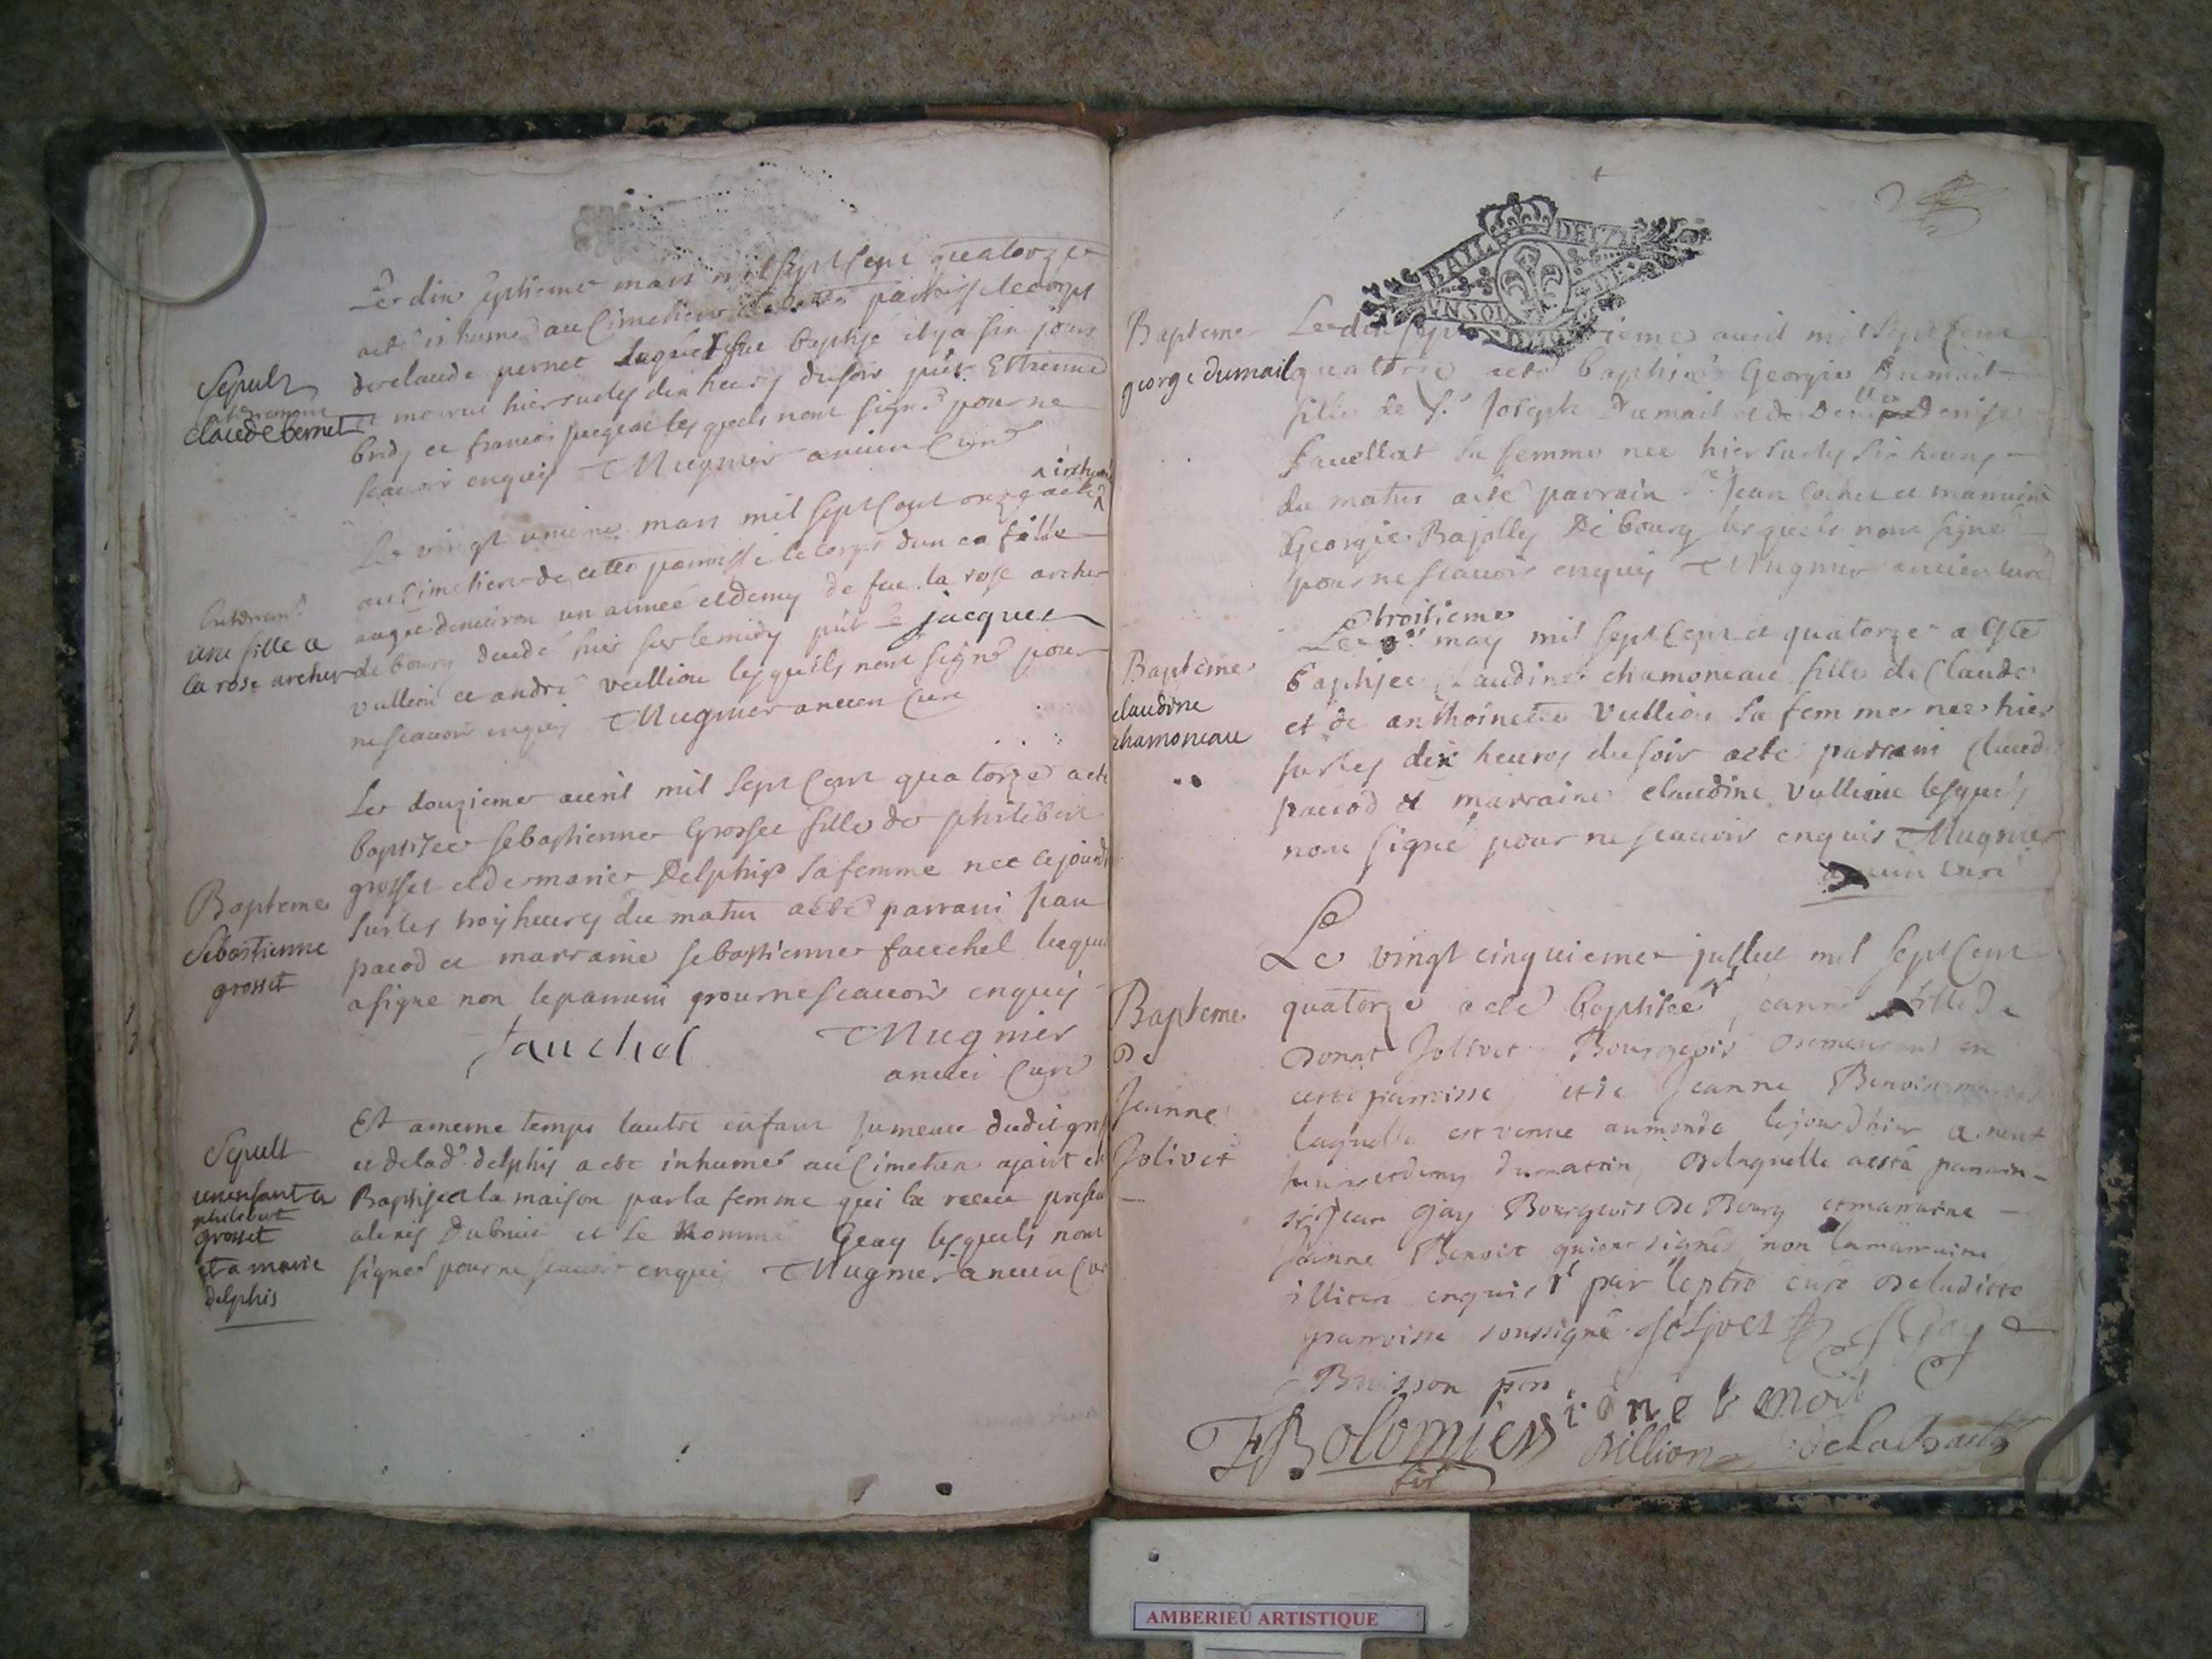 Le dix septieme mars mil sept Cent quatorze
a eté inhumé au Cimetiere de cette paroisse le corps
de claude pernet lequel fut baptisé il y a six jours
et mourut hier sur les dix heures du soir pnt Ettienne
et francois lesquels nont signé pour ne
scavoir enquis Mugnier ancien Curé
Sepult
Enterremen
claude bernet
Le vingt unieme mars mil sept Cent a eté inhumé
au Cimetiere de cette paroisse le corps dun ea fille
de environ un année et demy de feu la rose archer
de bourg hier sur le midy pnt jacques
vullion et andré vullion lesquels nont signé pour
ne scavoir enquis Mugnier ancien Curé
Enterrem
une fille a
la rose archer
Le douzieme avril mil sept Cent quatorze a eté
baptisee sebastienne Grosset fille de philibert
grosset et de marie Delphis sa femme nee cejourd
sur les trois heures du matin a été parrain Jean
pacod et marraine sebastienne fauchel laquel
a signe non le parrain pour ne scavoir enquis
fauchel Mugnier
ancien Curé
Bapteme
Sebastienne
grosset
Et a meme temps lautre enfant jumeau dudit gros
et de lad. delphis a eté inhumé au Cimetiere ajant eté
Baptisé a la maison par la femme qui la receu present
alexis Dubuis et le nommé Geay lesquels nont
signé pour ne scavoir enquis Mugnier ancien Cur
Sepult
un enfant a
philibert
grosset
et a marie
delphis
BAIL DE
UN SOL
Bapteme
george dumail
Le dix sept ieme avril mil sept Cent
quatorze a eté baptisé Georgie Dumail
fille de Sr Joseph Dumail et de Denise
favellat sa femme nee hier sur les six heures
du matin a eté parrain Sr Jean et marraine
Georgie Bajolley De bourg lesquels nont signé
pour ne scavoir enquis Mugnier ancien curé
Le troisieme
may mil sept Cent et quatorze a este
baptisee Claudine chamoneau fille de Claude
et de anthoinette Vullion sa femme nee hier
sur les dix heures du soir a eté parrain Claude
pacod et marraine claudine Vullion lesquels
nont signé pour ne scavoir enquis Mugnier
ancien curé
Bapteme
claudine
chamoneau
Le vingt cinquieme juillet mil sept Cent
quatorze a eté baptisée Jeanne fille de
Donat Jolivet Bourgeois demeurant en
cette parroisse et de Jeanne Benoit
laquelle est venue au monde le jour dhier a neuf
heures et demy du matin, de laquelle a esté parrain
sr Jean Gay Bourgeois De Bourg et marraine
Jeanne Benoit qui ont signés non la marraine
illitere enquis par le ptre curé de la ditte
parroisse soussigné. Jolivet J Gay
Buisson
Benoit
FBolomier
Dillion De la Bastie
Bapteme
De
Jeanne
Jolivet
AMBERIEU ARTISTIQUE